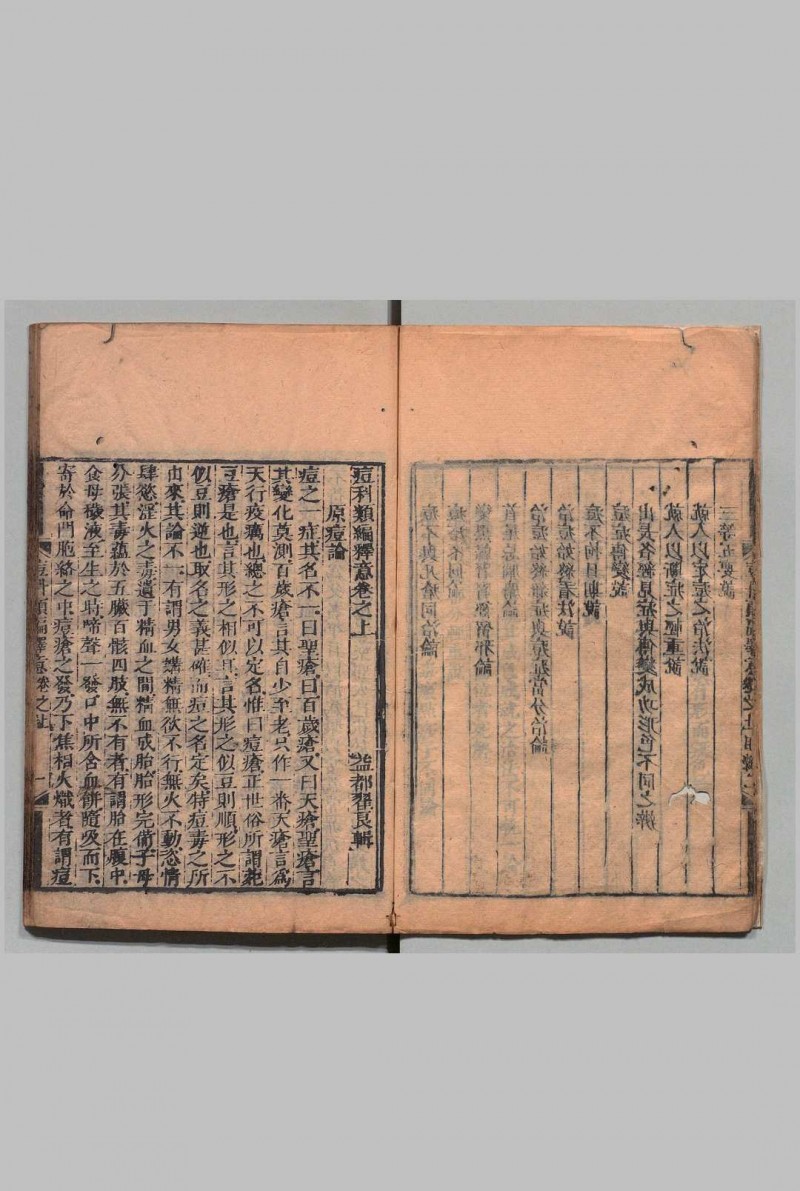 三等五要說
就人以定痘之治法說
就人以斷症之輕重說
出長各經見症與傳變成功形色不同之辨
痘疹傳變說
痘不拘日期說
治痘始終看法說
治痘始終雜症與痘症當分治論
痘疹不同論
痘不與凡瘡同治論
痘科類編釋意卷之上 益都翟良輯
原痘論
痘之一症其名不一曰聖瘡曰百歲瘡又曰天瘡聖瘡言
其變化莫測百歲瘡言其自少至老只作一番天瘡言爲
天行疫癘也總之不可以定名惟曰痘瘡正世俗所謂豌
豆瘡是也言其形之相似耳言其形之似豆則順形之不
似豆則逆也取名之義甚確而痘之名定矣特痘毒之所
由來其論不一有謂男女媾精無欲不行無火不動恣情
肆慾淫火之毒遺于精血之間精血成胎胎形完備子母
分張其毒蘊於五臟百骸四肢無不有者有謂胎在腹中
食母穢液至生之時啼聲一發口中所含血餅隨吸而下
寄於命門胞絡之中痘瘡之發乃下焦相火熾者有謂痘
痘科類編釋意卷之上 一